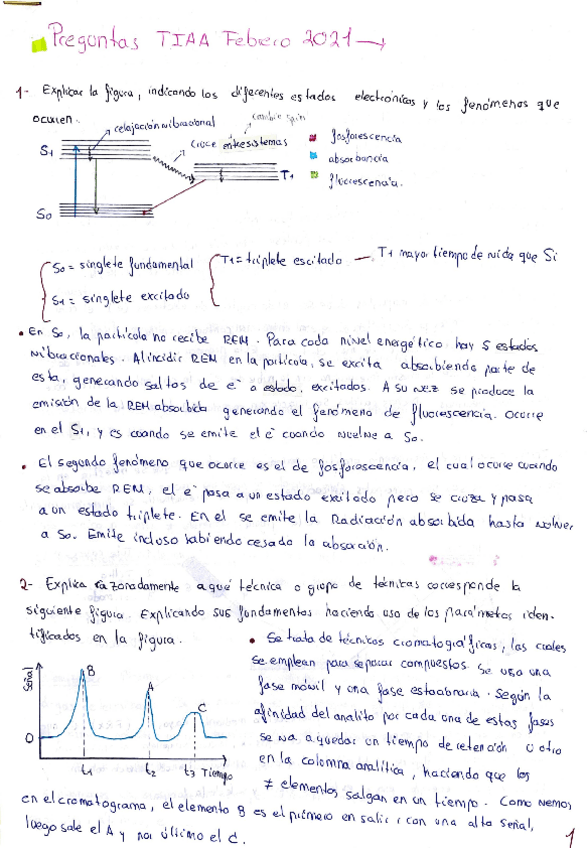 Preguntas TIAA Febrero 2021→
1- Explicar la figura, indicando los diferentes estados electrónicos y los fenómenos que
ocurren.
relajación vibracional
cambio spin
cruce entre sistemas
fosforescencia
absorbancia
fluorescencia.
S1
T1
S0
S0 = singlete fundamental
T1 = triplete escitado — T1 mayor tiempo de vida que S1
S1 = singlete excitado
• En S0, la partícula no recibe REM. Para cada nivel energético hay 5 estados
vibracionales. Al incidir REM en la partícula, se excita absorbiendo parte de
esta, generando saltos de e⁻ a estado excitados. A su vez se produce la
emisión de la REM absorbida generando el fenómeno de fluorescencia. Ocurre
en el S1, y es cuando se emite el e⁻ cuando vuelve a S0.
• El segundo fenómeno que ocurre es el de fosforescencia, el cual ocurre cuando
se absorbe REM, el e⁻ pasa a un estado excitado pero se cruza y pasa
a un estado triplete. En el se emite la Radiación absorbida hasta volver
a S0. Emite incluso habiendo cesado la absorción.
2- Explica razonadamente a qué técnica o grupo de técnicas corresponde la
siguiente figura. Explicando sus fundamentos haciendo uso de los parámetros iden-
tificados en la figura.
Señal
B
A
C
0
t1
t2
t3
Tiempo
• Se trata de técnicas cromatográficas, las cuales
se emplean para separar compuestos. Se usa una
fase móvil y una fase estacionaria. Según la
afinidad del analito por cada una de estas fases
se va a quedar un tiempo de retención u otro
en la columna analítica, haciendo que los
≠ elementos salgan en un tiempo. Como vemos
en el cromatograma, el elemento B es el primero en salir con una alta señal,
luego sale el A y por último el C.
1